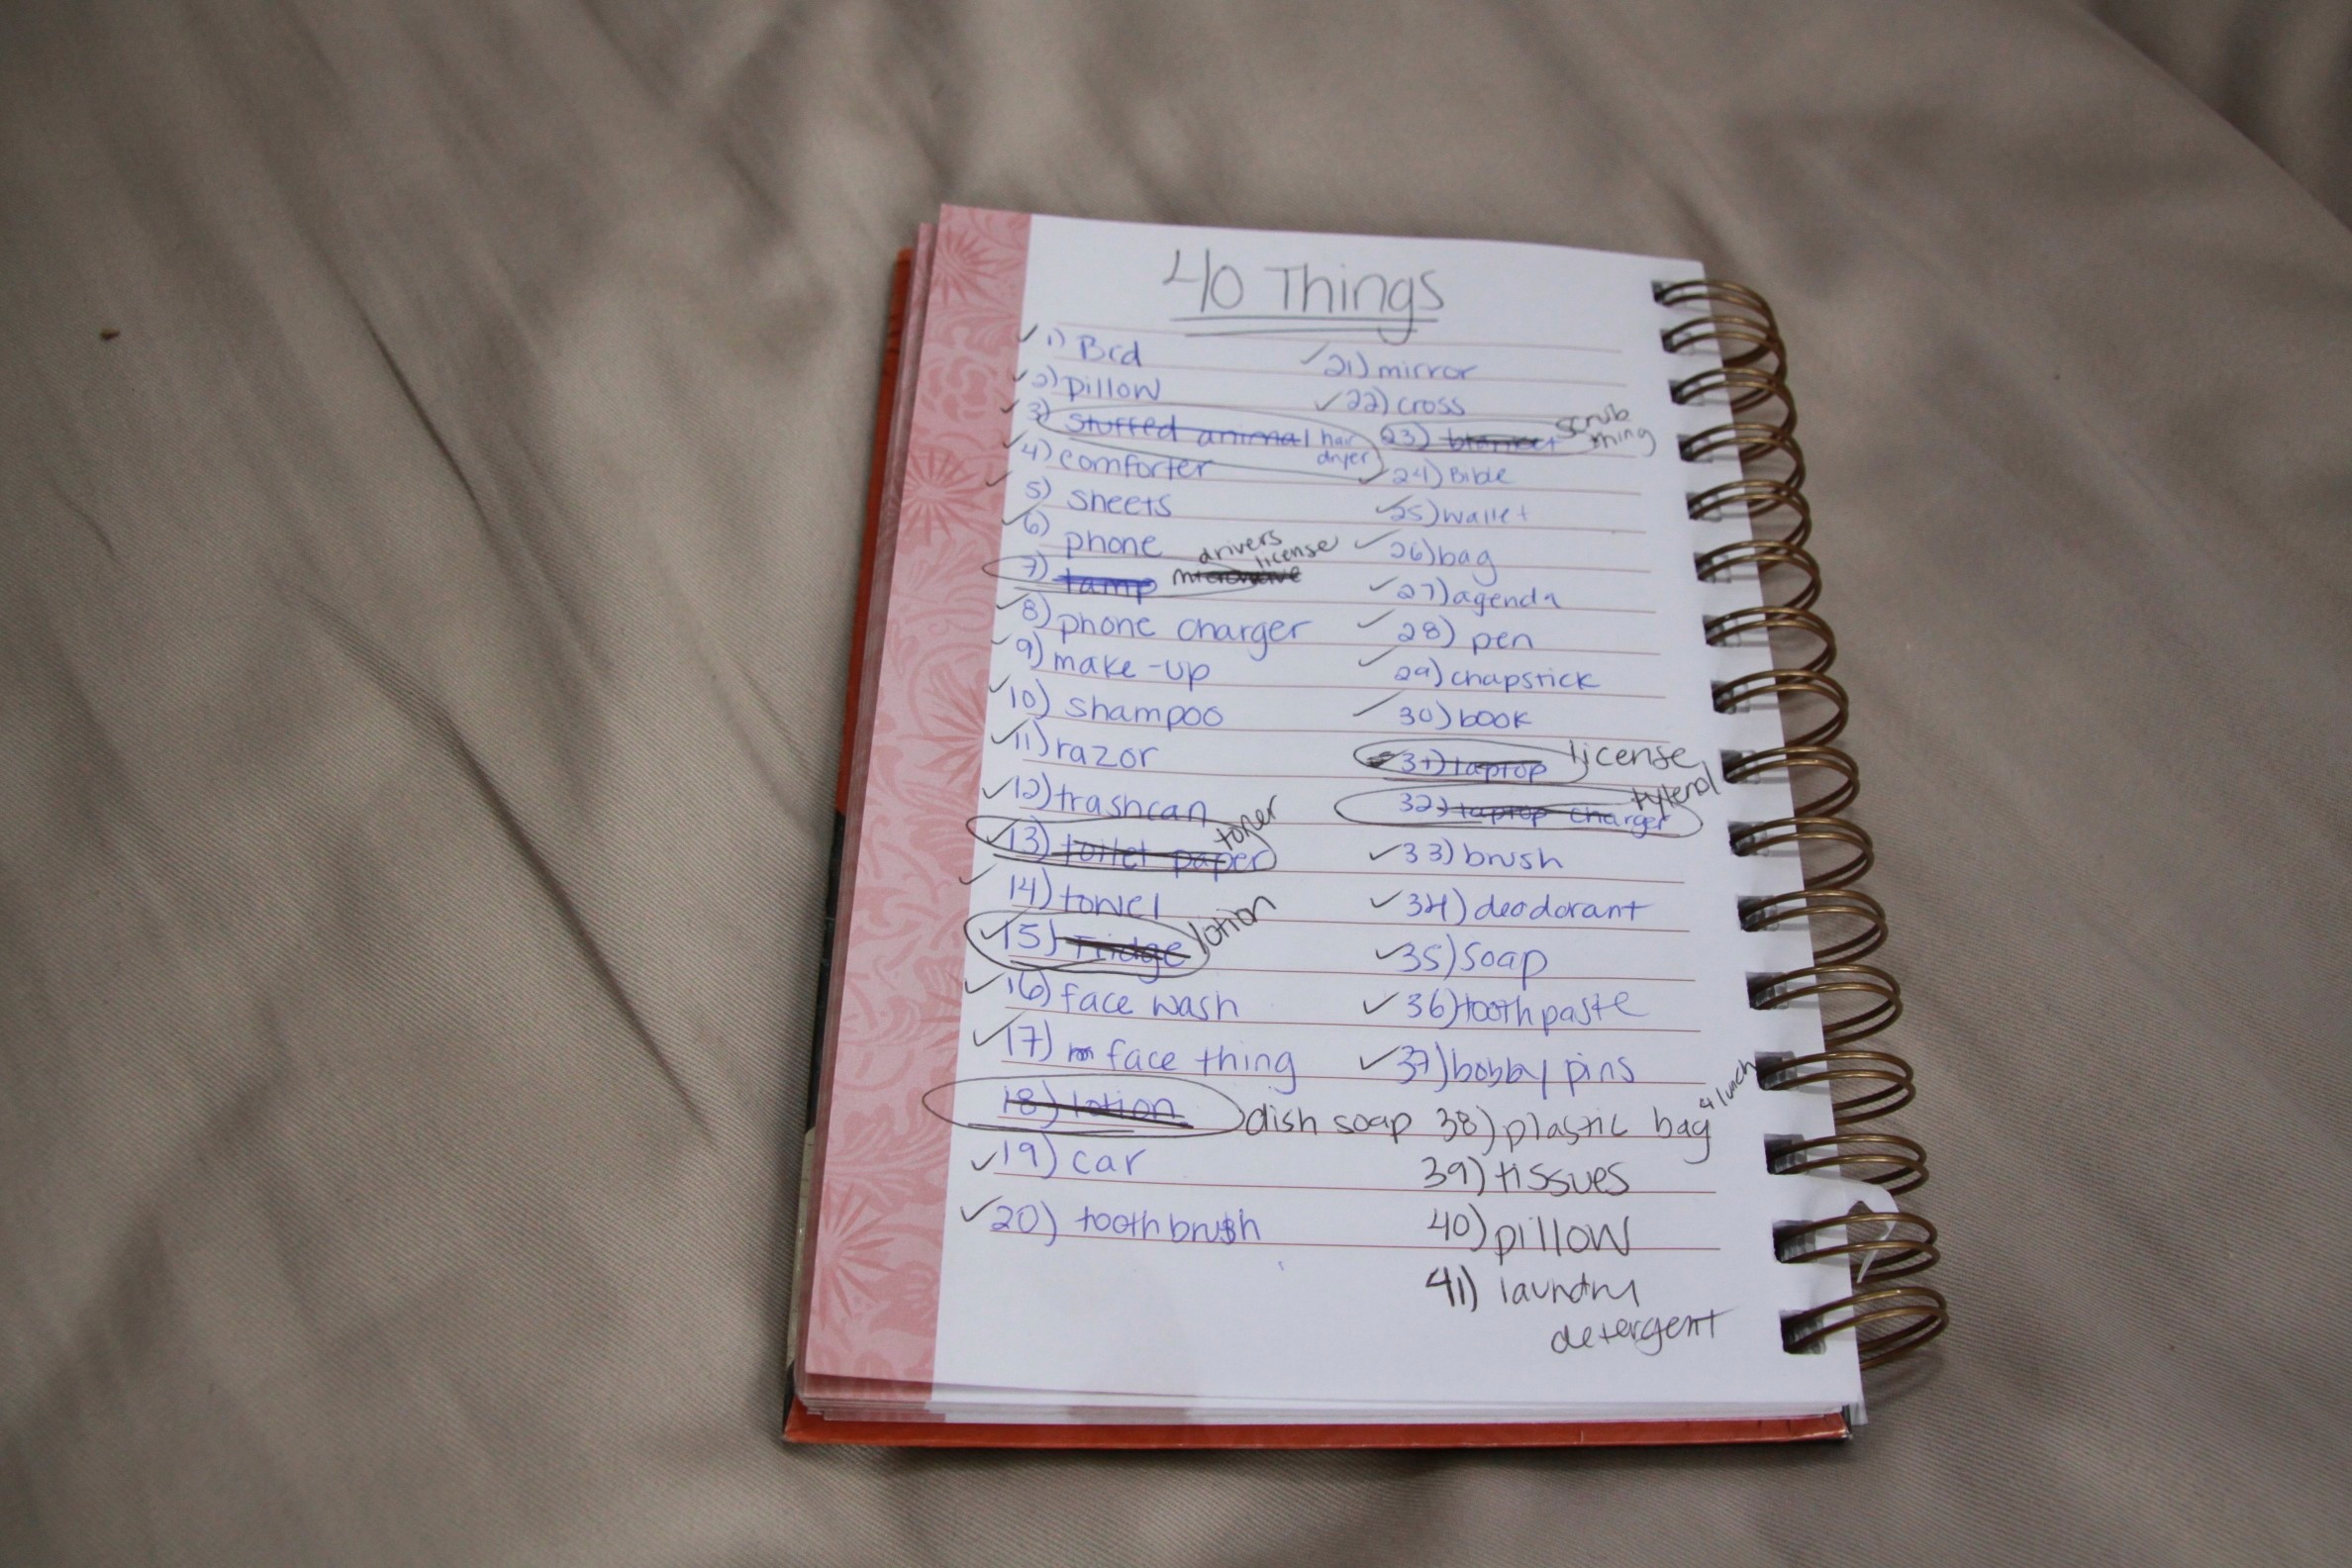 40 Things
1) Bed
2) pillow
3) stuffed animal hair dryer
4) comforter
5) sheets
6) phone
7) lamp microwave drivers license
8) phone charger
9) make-up
10) shampoo
11) razor
12) trashcan
13) toilet paper toner
14) towel
15) Fridge lotion
16) face wash
17) face thing
18) lotion dish soap
19) car
20) toothbrush
21) mirror
22) cross
23) blanket scrub thing
24) Bible
25) wallet
26) bag
27) agenda
28) pen
29) chapstick
30) book
31) laptop license
32) laptop charger tylenol
33) brush
34) deodorant
35) soap
36) toothpaste
37) bobby pins
38) plastic bag 4 lunch
39) tissues
40) pillow
41) laundry
detergent